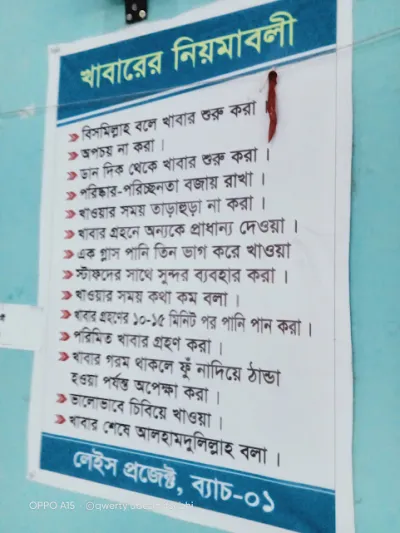 খাবারের নিয়মাবলী
বিসমিল্লাহ বলে খাবার শুরু করা ।
অপচয় না করা ।
ডান দিক থেকে খাবার শুরু করা ।
পরিষ্কার-পরিচ্ছনতা বজায় রাখা ।
খাওয়ার সময় তাড়াহুড়া না করা ।
খাবার গ্রহনে অন্যকে প্রাধান্য দেওয়া ।
এক গ্লাস পানি তিন ভাগ করে খাওয়া
স্টাফদের সাথে সুন্দর ব্যবহার করা ।
খাওয়ার সময় কথা কম বলা ।
খাবার গ্রহণের ১০-১৫ মিনিট পর পানি পান করা ।
পরিমিত খাবার গ্রহণ করা ।
খাবার গরম থাকলে ফুঁ নাদিয়ে ঠান্ডা
হওয়া পর্যন্ত অপেক্ষা করা ।
ভালোভাবে চিবিয়ে খাওয়া ।
খাবার শেষে আলহামদুলিল্লাহ বলা ।
লেইস প্রজেক্ট, ব্যাচ-০১
OPPO A15